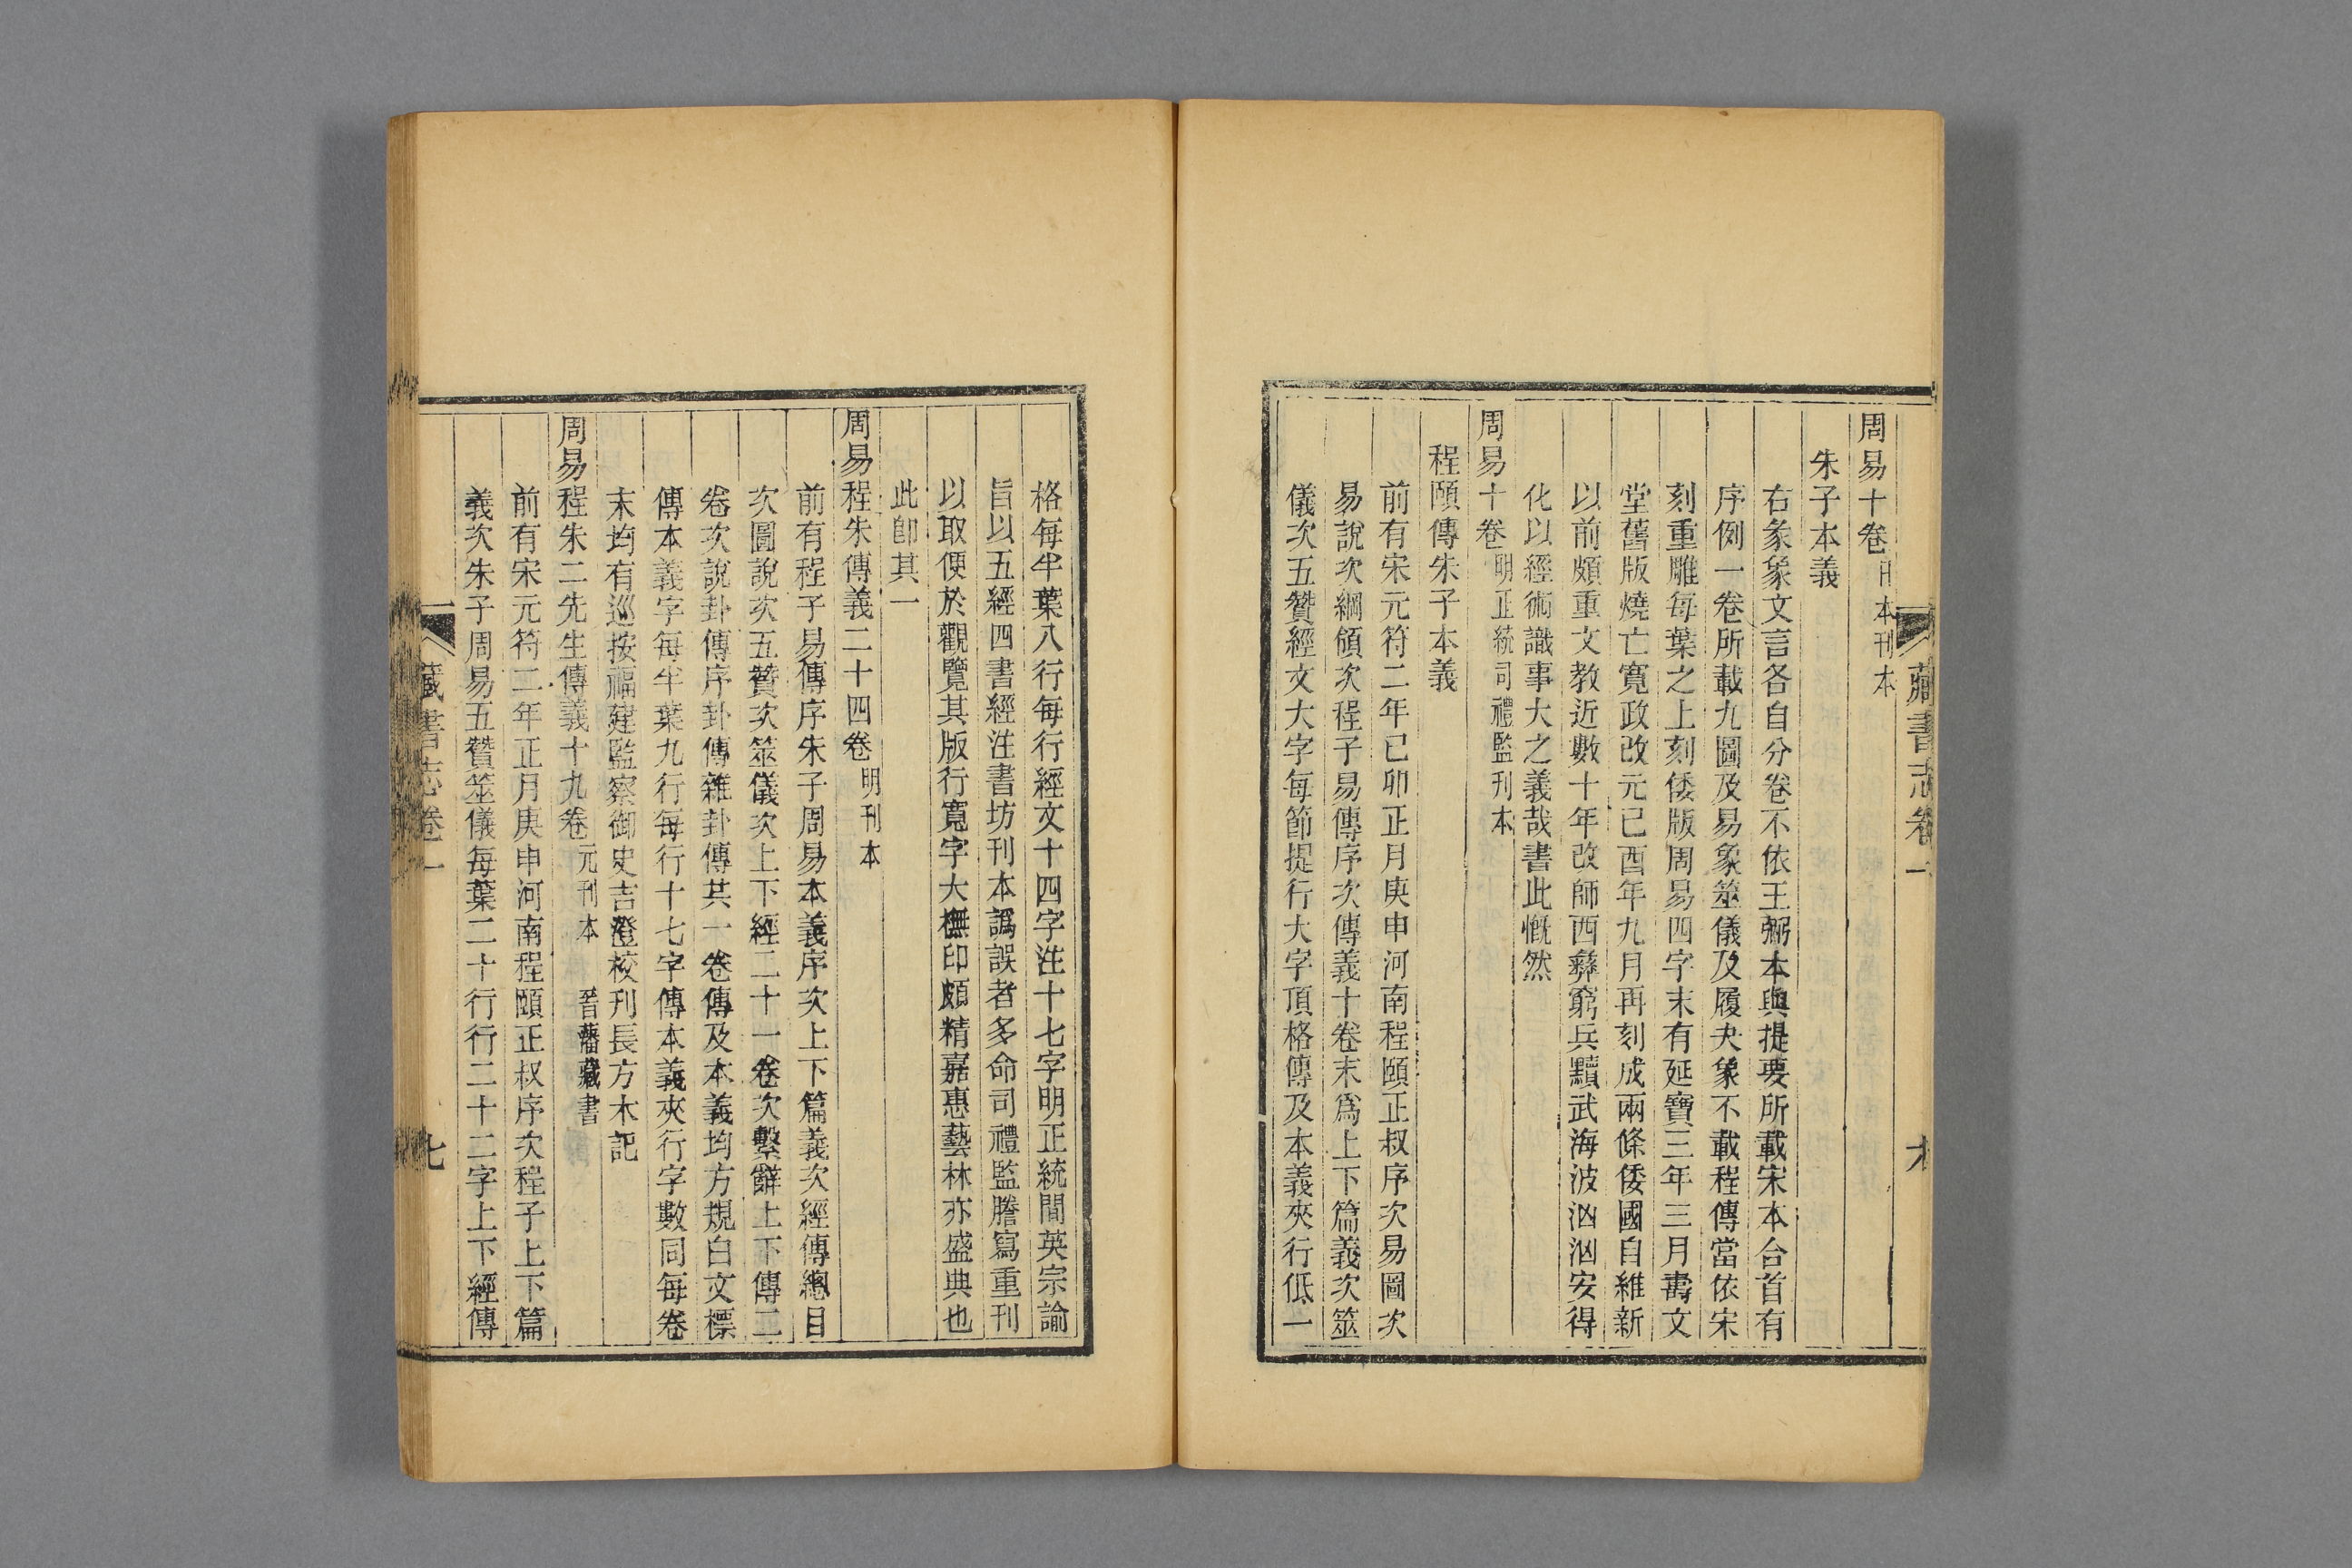 周易十卷 日本刊本
朱子本義
右彖象文言各自分卷不依王弼本與提要所載宋本合首有
序例一卷所載九圖及易象筮儀及履夬象不載程傳當依宋
刻重雕每葉之上刻倭版周易四字末有延寶三年三月壽文
堂舊版燒亡寬政改元己酉年九月再刻成兩條倭國自維新
以前頗重文教近數十年改師西彜窮兵黷武海波汹汹安得
化以經術識事大之義哉書此慨然
周易十卷 明正統司禮監刊本
程頤傳朱子本義
前有宋元符二年己卯正月庚申河南程頤正叔序次易圖次
易說次綱領次程子易傳序次傳義十卷末為上下篇義次筮
儀次五贊經文大字每節提行大字頂格傳及本義夾行低一
藏書志卷一
格每半葉八行每行經文十四字注十七字明正統間英宗諭
旨以五經四書經注書坊刊本譌誤者多命司禮監謄寫重刊
以取便於觀覽其版行寬字大橅印頗精嘉惠藝林亦盛典也
此卽其一
周易程朱傳義二十四卷 明刊本
前有程子易傳序朱子周易本義序次上下篇義次經傳總目
次圖說次五贊次筮儀次上下經二十一卷次繫辭上下傳二
卷次說卦傳序卦傳雜卦傳共一卷傳及本義均方規白文標
傳本義字每半葉九行每行十七字傳本義夾行字數同每卷
末均有巡按福建監察御史吉澄校刊長方木記
周易程朱二先生傳義十九卷 元刊本 晉藩藏書
前有宋元符二年正月庚申河南程頤正叔序次程子上下篇
義次朱子周易五贊筮儀每葉二十行行二十二字上下經傳
藏書志卷一
七